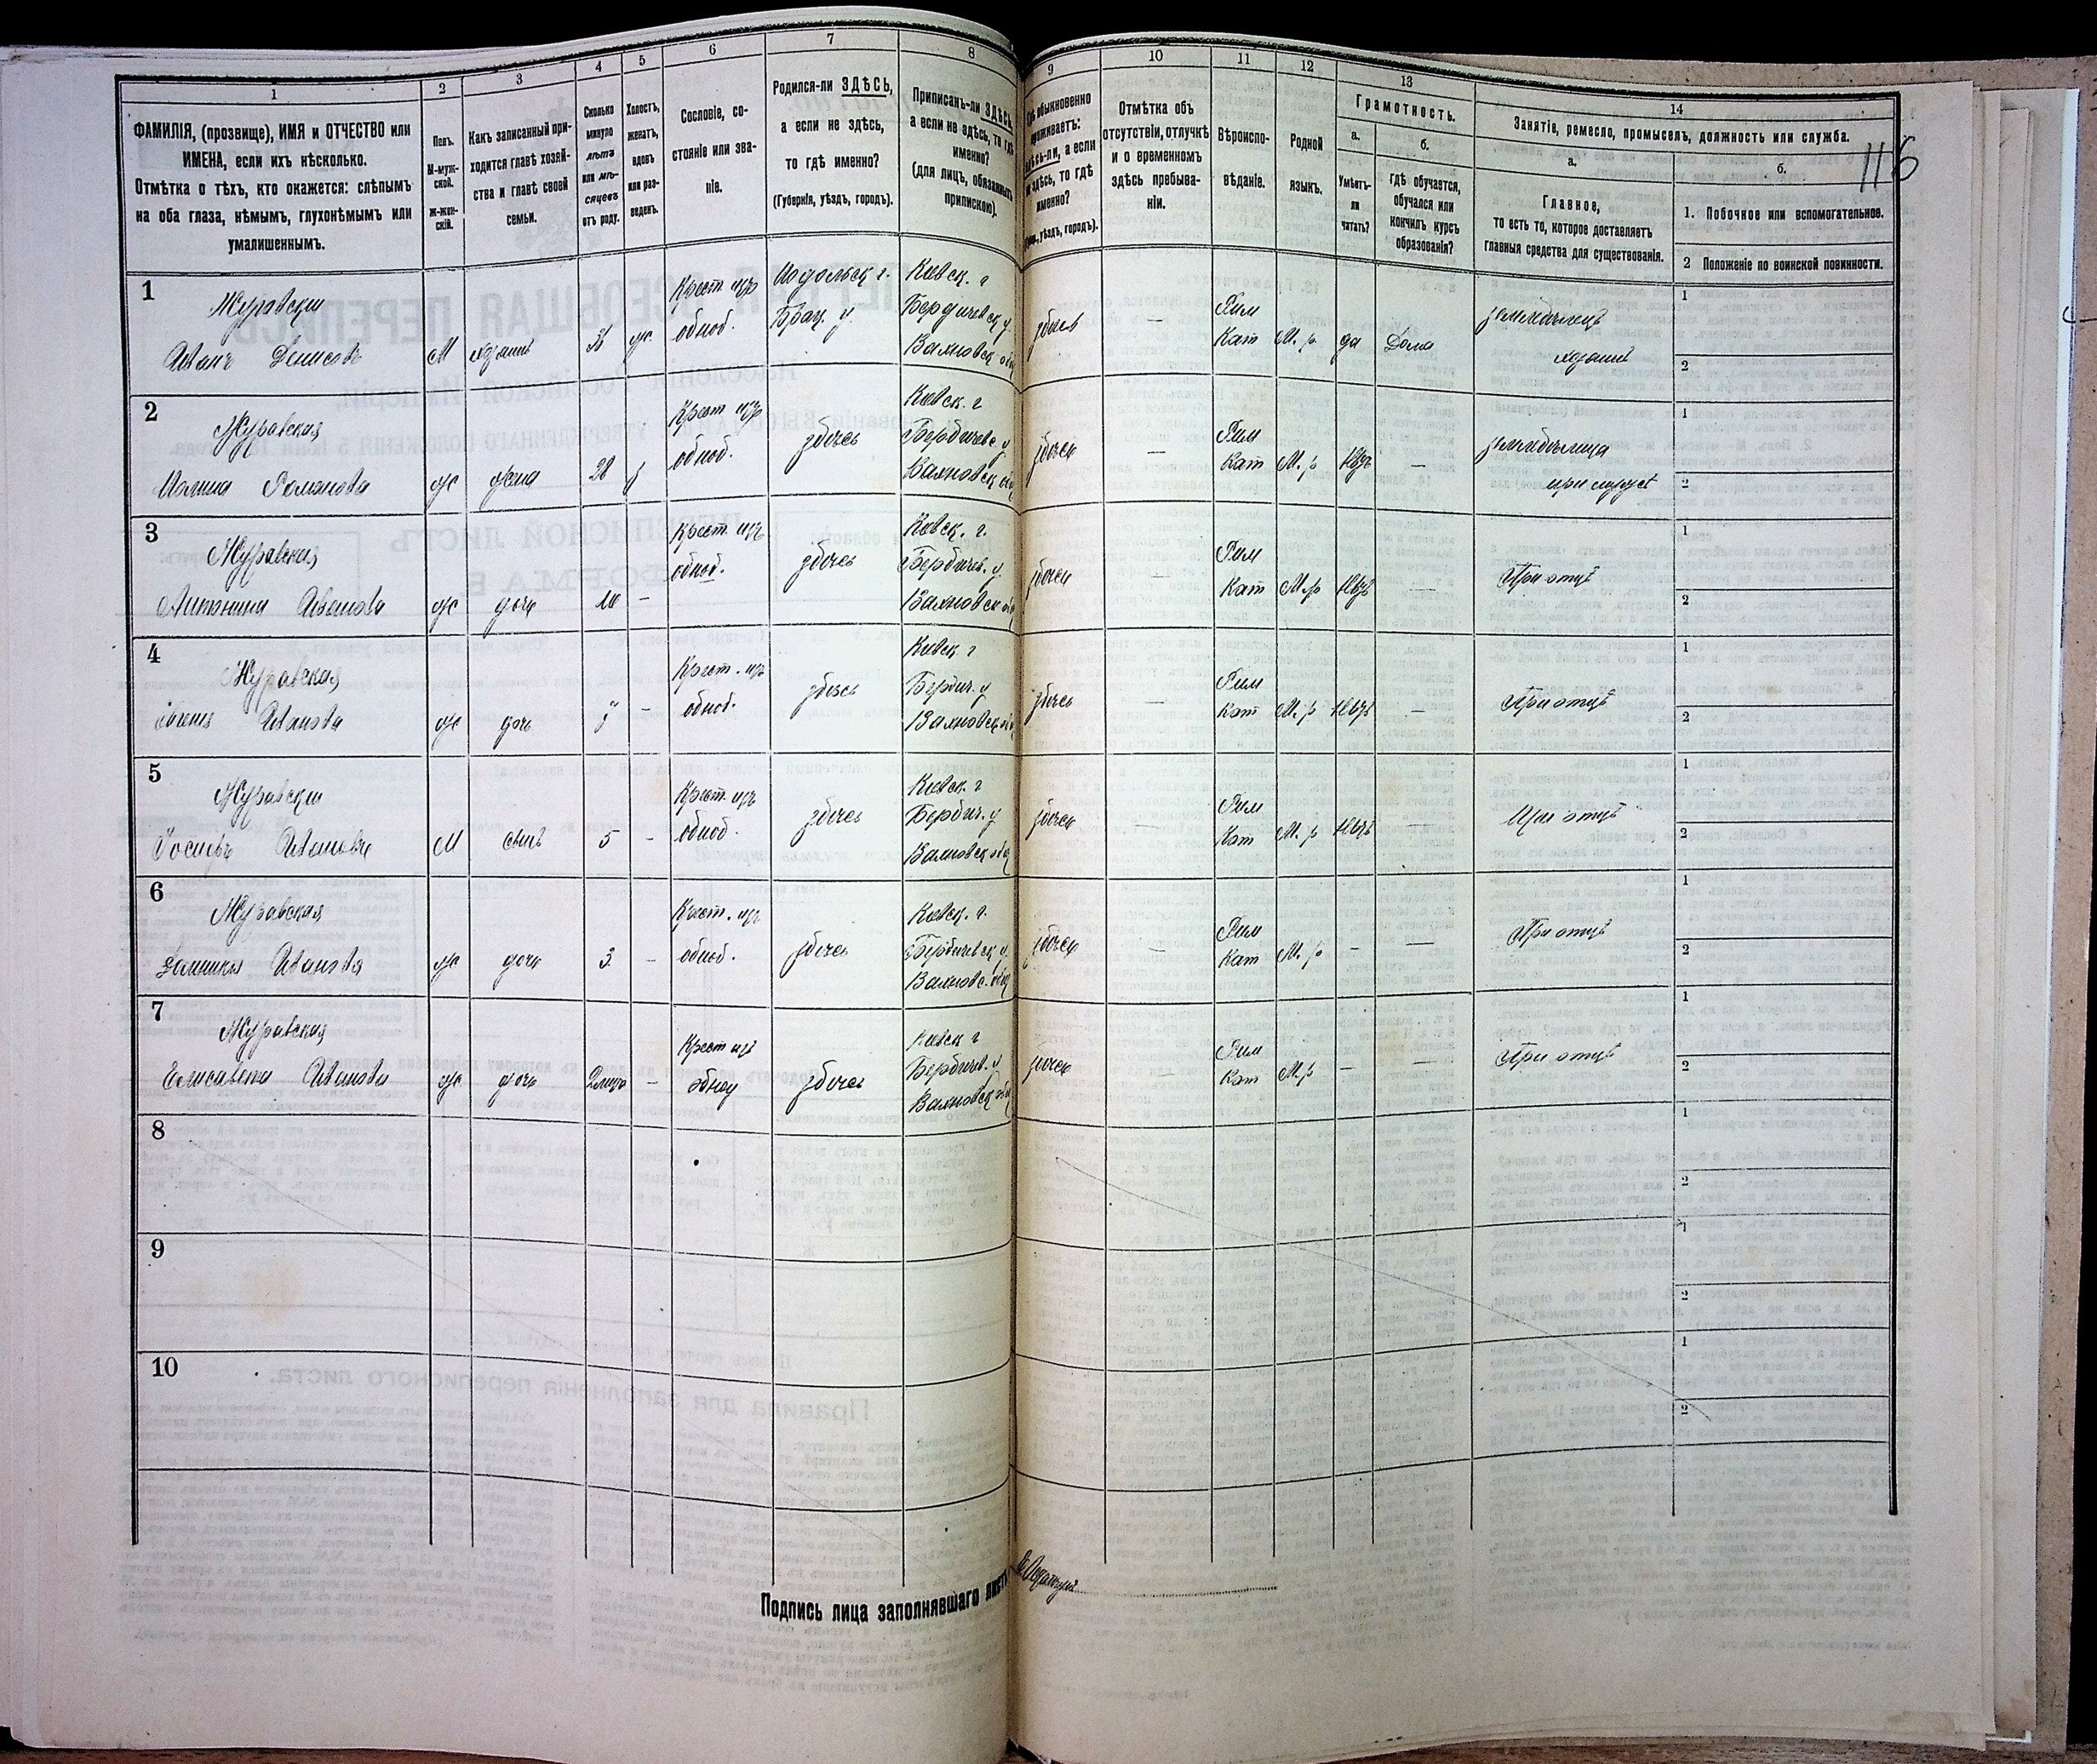 1
2
3
4
5
6
7
8
9
10
11
12
13
14
ФАМИЛІЯ, (прозвище), ИМЯ и ОТЧЕСТВО или
ИМЕНА, если ихъ нѣсколько.
Отмѣтка о тѣхъ, кто окажется: слѣпымъ
на оба глаза, нѣмымъ, глухонѣмымъ или
умалишеннымъ.
Полъ.
М-муж-
ской.
Ж-жен-
скій.
Какъ записанный при-
ходится главѣ хозяй-
ства и главѣ своей
семьи.
Сколько
минуло
лѣтъ
или мѣ-
сяцевъ
отъ роду.
Холостъ,
женатъ,
вдовъ
или раз-
веденъ.
Сословіе, со-
стояніе или зва-
ніе.
Родился-ли ЗДѢСЬ,
а если не здѣсь,
то гдѣ именно?
(Губернія, уѣздъ, городъ).
Приписанъ-ли ЗДѢСЬ,
а если не здѣсь, то гдѣ
именно?
(для лицъ, обязанныхъ
припискою).
обыкновенно
проживаетъ:
здѣсь-ли, а если
не здѣсь, то гдѣ
именно?
уѣздъ, городъ).
Отмѣтка объ
отсутствіи, отлучкѣ
и о временномъ
здѣсь пребыва-
ніи.
Вѣроиспо-
вѣданіе.
Родной
языкъ.
Грамотность.
а.
Умѣетъ-
ли
читать?
б.
гдѣ обучается,
обучался или
кончилъ курсъ
образованія?
Занятіе, ремесло, промыселъ, должность или служба.
а.
Главное,
то есть то, которое доставляетъ
главныя средства для существованія.
б.
1. Побочное или вспомогательное.
2 Положеніе по воинской повинности.
116
1
Журавскій
Иванъ Денисовъ
М
хозяинъ
ж.
Крест. изъ
однод.
Подольск г.
Брац. у.
Кіевск. г
Бердичевск у.
Вахновск
здѣсь
—
Рим
Кат
М. р
да
Дома
земледѣлецъ
хозяинъ
1
2
2
Журавская
Романова
ж
жена
28
з
Крест изъ
однод.
здѣсь
Кіевск. г
Бердичевс у
Вахновск
здѣсь
—
Рим
Кат
М. р
нѣтъ
—
земледѣлица
при мужѣ
1
2
3
Журавская
Антонина Иванова
ж
дочь
10
-
Крест. изъ
однод.
здѣсь
Кіевск. г.
Бердичев. у.
Вахновск
здѣсь
—
Рим
Кат
М. р
нѣтъ
—
При отцѣ
1
2
4
Журавская
Иванова
ж
дочь
-
Крест. изъ
однод.
здѣсь
Кіевск г
Бердич. у
Вахновск
здѣсь
—
Рим
Кат
М. р
нѣтъ
—
При отцѣ
1
2
5
Журавскій
Іосифъ Ивановъ
М
сынъ
5
-
Крест. изъ
однод.
здѣсь
Кіевск. г
Бердич. у
Вахновск
здѣсь
—
Рим
Кат
М. р
нѣтъ
—
При отцѣ
1
2
6
Журавская
Иванова
ж
дочь
3
-
Крест. изъ
однод.
здѣсь
Кіевск. г.
Бердичевск у.
Вахновс.
здѣсь
—
Рим
Кат
М. р
-
—
При отцѣ
1
2
7
Журавская
Елисавета Иванова
ж
дочь
-
Крест изъ
однод
здѣсь
Кіевск г
Бердичев. у
Вахновск
здѣсь
—
Рим
Кат
М. р
-
—
При отцѣ
1
2
8
1
2
9
1
2
10
1
2
Подпись лица заполнявшаго листъ